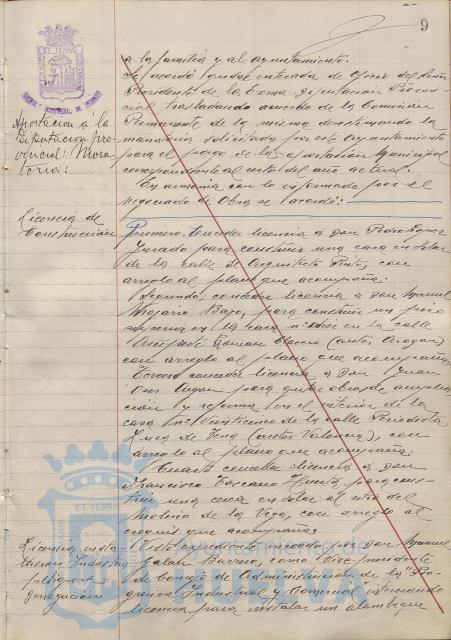 9
a la familia y al ayuntamiento.
Se acordó quedar enterada de Oficio del Señor
Presidente de la Excma. Diputación Provin-
cial trasladando acuerdo de la Comisión
Permanente de la misma desestimando la
moratoria solicitada por este Ayuntamiento
para el pago de la aportación Municipal
correspondiente al resto del año actual.
Aportación a la
Diputación pro-
vincial: Mora-
toria:
En armonía con lo informado por el
negociado de Obras se acordó:
Licencia de
Construcción
Primero: Conceder licencia a don Pedro Lopez
Jurado para construir una casa en solar
de la calle de Arquitecto Pinto, con
arreglo al plano que acompaña:
Segundo, conceder licencia a don Manuel
Bajo, para construir un piso
en la casa en la calle
Arcipreste Roman Blanco (antes Aragon)
con arreglo al plano que acompaña
Tercero conceder licencia a Don Juan
para obras de amplia-
ción y reforma en el interior de la
casa nº veinticinco de la calle Periodista
Luca de Tena (antes Valencia), con
arreglo al plano que acompaña:
Cuarto conceder licencia a don
Francisco Toscano para cons-
truir una cerca en solar al sitio del
Molino de la Vega, con arreglo al
croquis que acompaña:
Licencia insta-
lación Industria
peligrosa
denegación
Visto expediente incoado por don Manuel
Galan Barrero, como Vice-presidente
de Consejo de Administración de la "Pro-
Industrial y Comercial" interesando
licencia para instalar un alambique
EL TERRAE
Ayuntamiento de